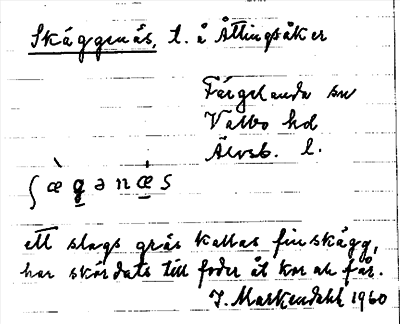 Skäggenäs, t. å Åttingsåker
Färgelanda sn
Valbo hd
Älvsb. l.
ʃæ̀gənæ̇s
ett slags gräs kallas finskägg,
har skördats till foder åt kor och får.
J. Markendahl 1960